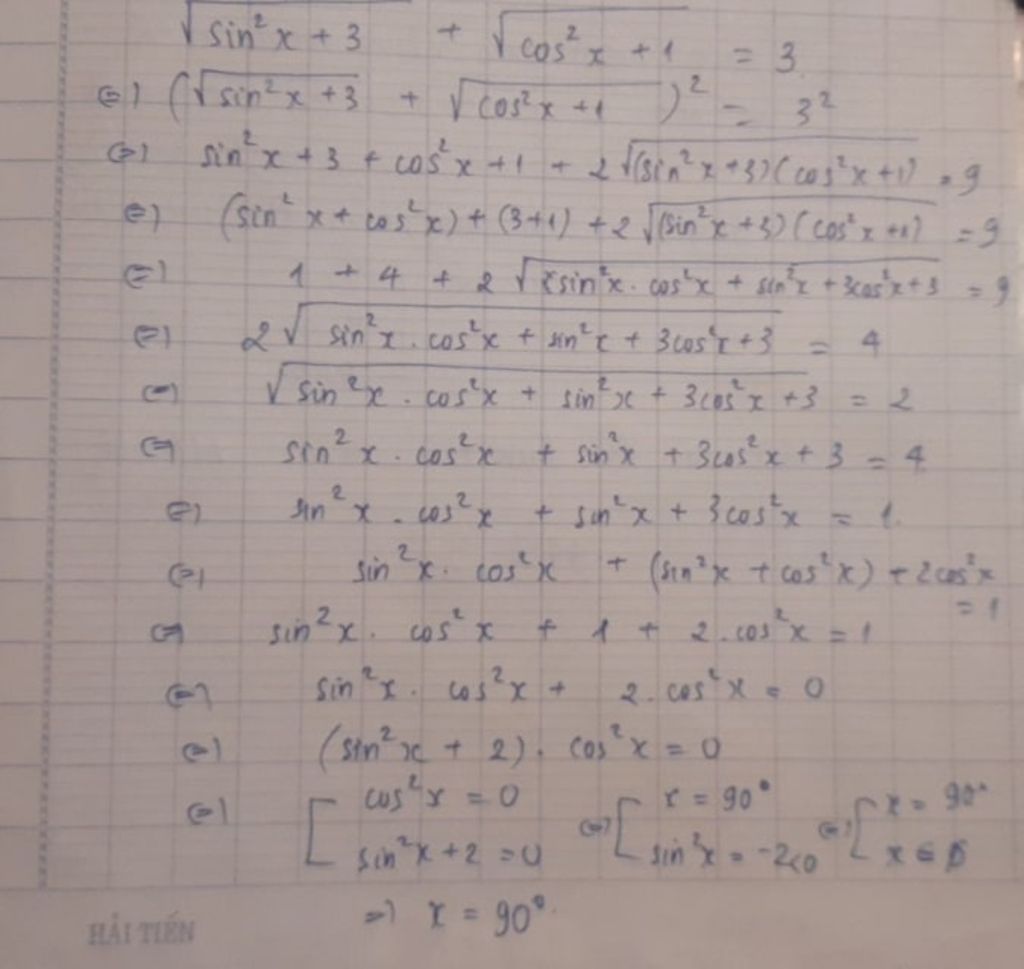 √(sin²x + 3) + √(cos²x + 1) = 3
⇔ (√(sin²x + 3) + √(cos²x + 1))² = 3²
⇔ sin²x + 3 + cos²x + 1 + 2√((sin²x + 3)(cos²x + 1)) = 9
⇔ (sin²x + cos²x) + (3 + 1) + 2√((sin²x + 3)(cos²x + 1)) = 9
⇔ 1 + 4 + 2√(sin²x . cos²x + sin²x + 3cos²x + 3) = 9
⇔ 2√(sin²x . cos²x + sin²x + 3cos²x + 3) = 4
⇔ √(sin²x . cos²x + sin²x + 3cos²x + 3) = 2
⇔ sin²x . cos²x + sin²x + 3cos²x + 3 = 4
⇔ sin²x . cos²x + sin²x + 3cos²x = 1.
⇔ sin²x . cos²x + (sin²x + cos²x) + 2cos²x
= 1
⇔ sin²x . cos²x + 1 + 2.cos²x = 1
⇔ sin²x . cos²x + 2.cos²x = 0
⇔ (sin²x + 2) . cos²x = 0
⇔ [ cos²x = 0 ⇔ [ x = 90° ⇔ [ x = 90°
sin²x + 2 = 0 sin²x = -2 < 0 x ∈ ∅
⇒ x = 90°.
HẢI TIẾN